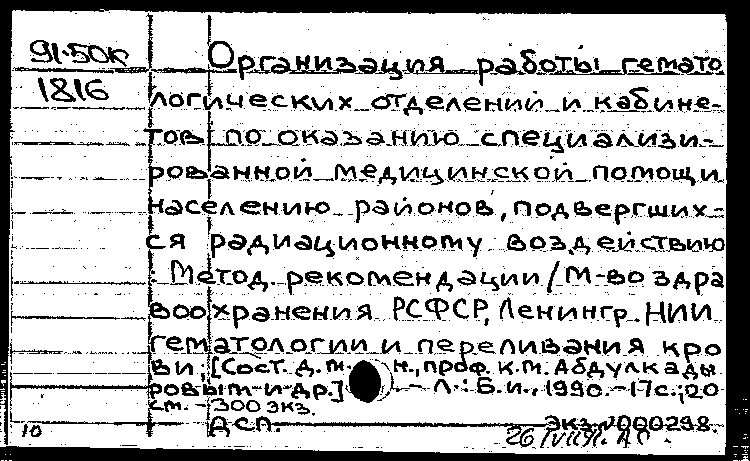 91-50к Организация работы гемато
1816 логических отделений и кабине-
тов по оказанию специализи-
рованной медицинской помощи
населению районов, подвергших-
ся радиационному воздействию
: Метод. рекомендации / М-во здра
воохранения РСФСР, Ленингр. НИИ
гематологии и переливания кро
ви; [Сост. д. м. н., проф. К.М. Абдулкады
ровым и др.] - Л.: Б.и., 1990. - 17с.; 20
см. - 300 экз.
ДСП. Экз. N000298.
10 26/VII 91.